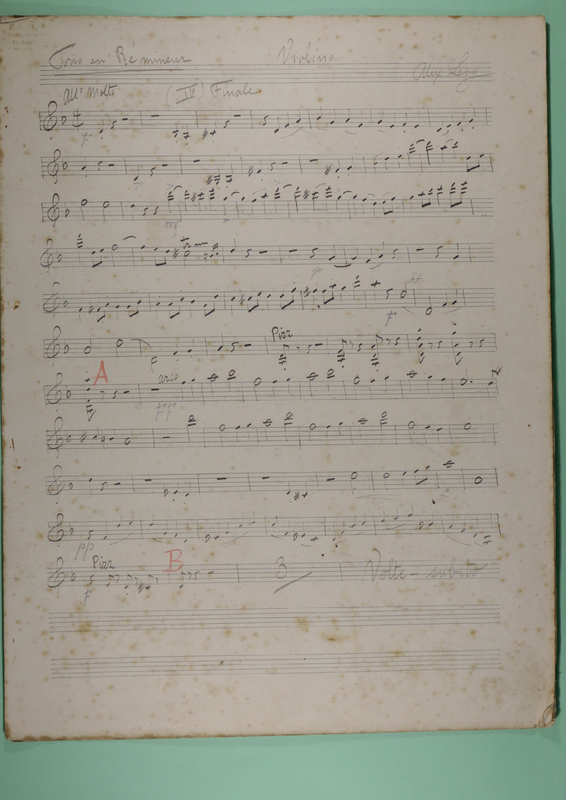 Trio en Ré mineur Violino
Alex
All° Molto (IV) Finale
f
mf
p
tr
p
ff
f
Pizz
A arco
ppp
pp
Pizz B 3 Volte - subito
f